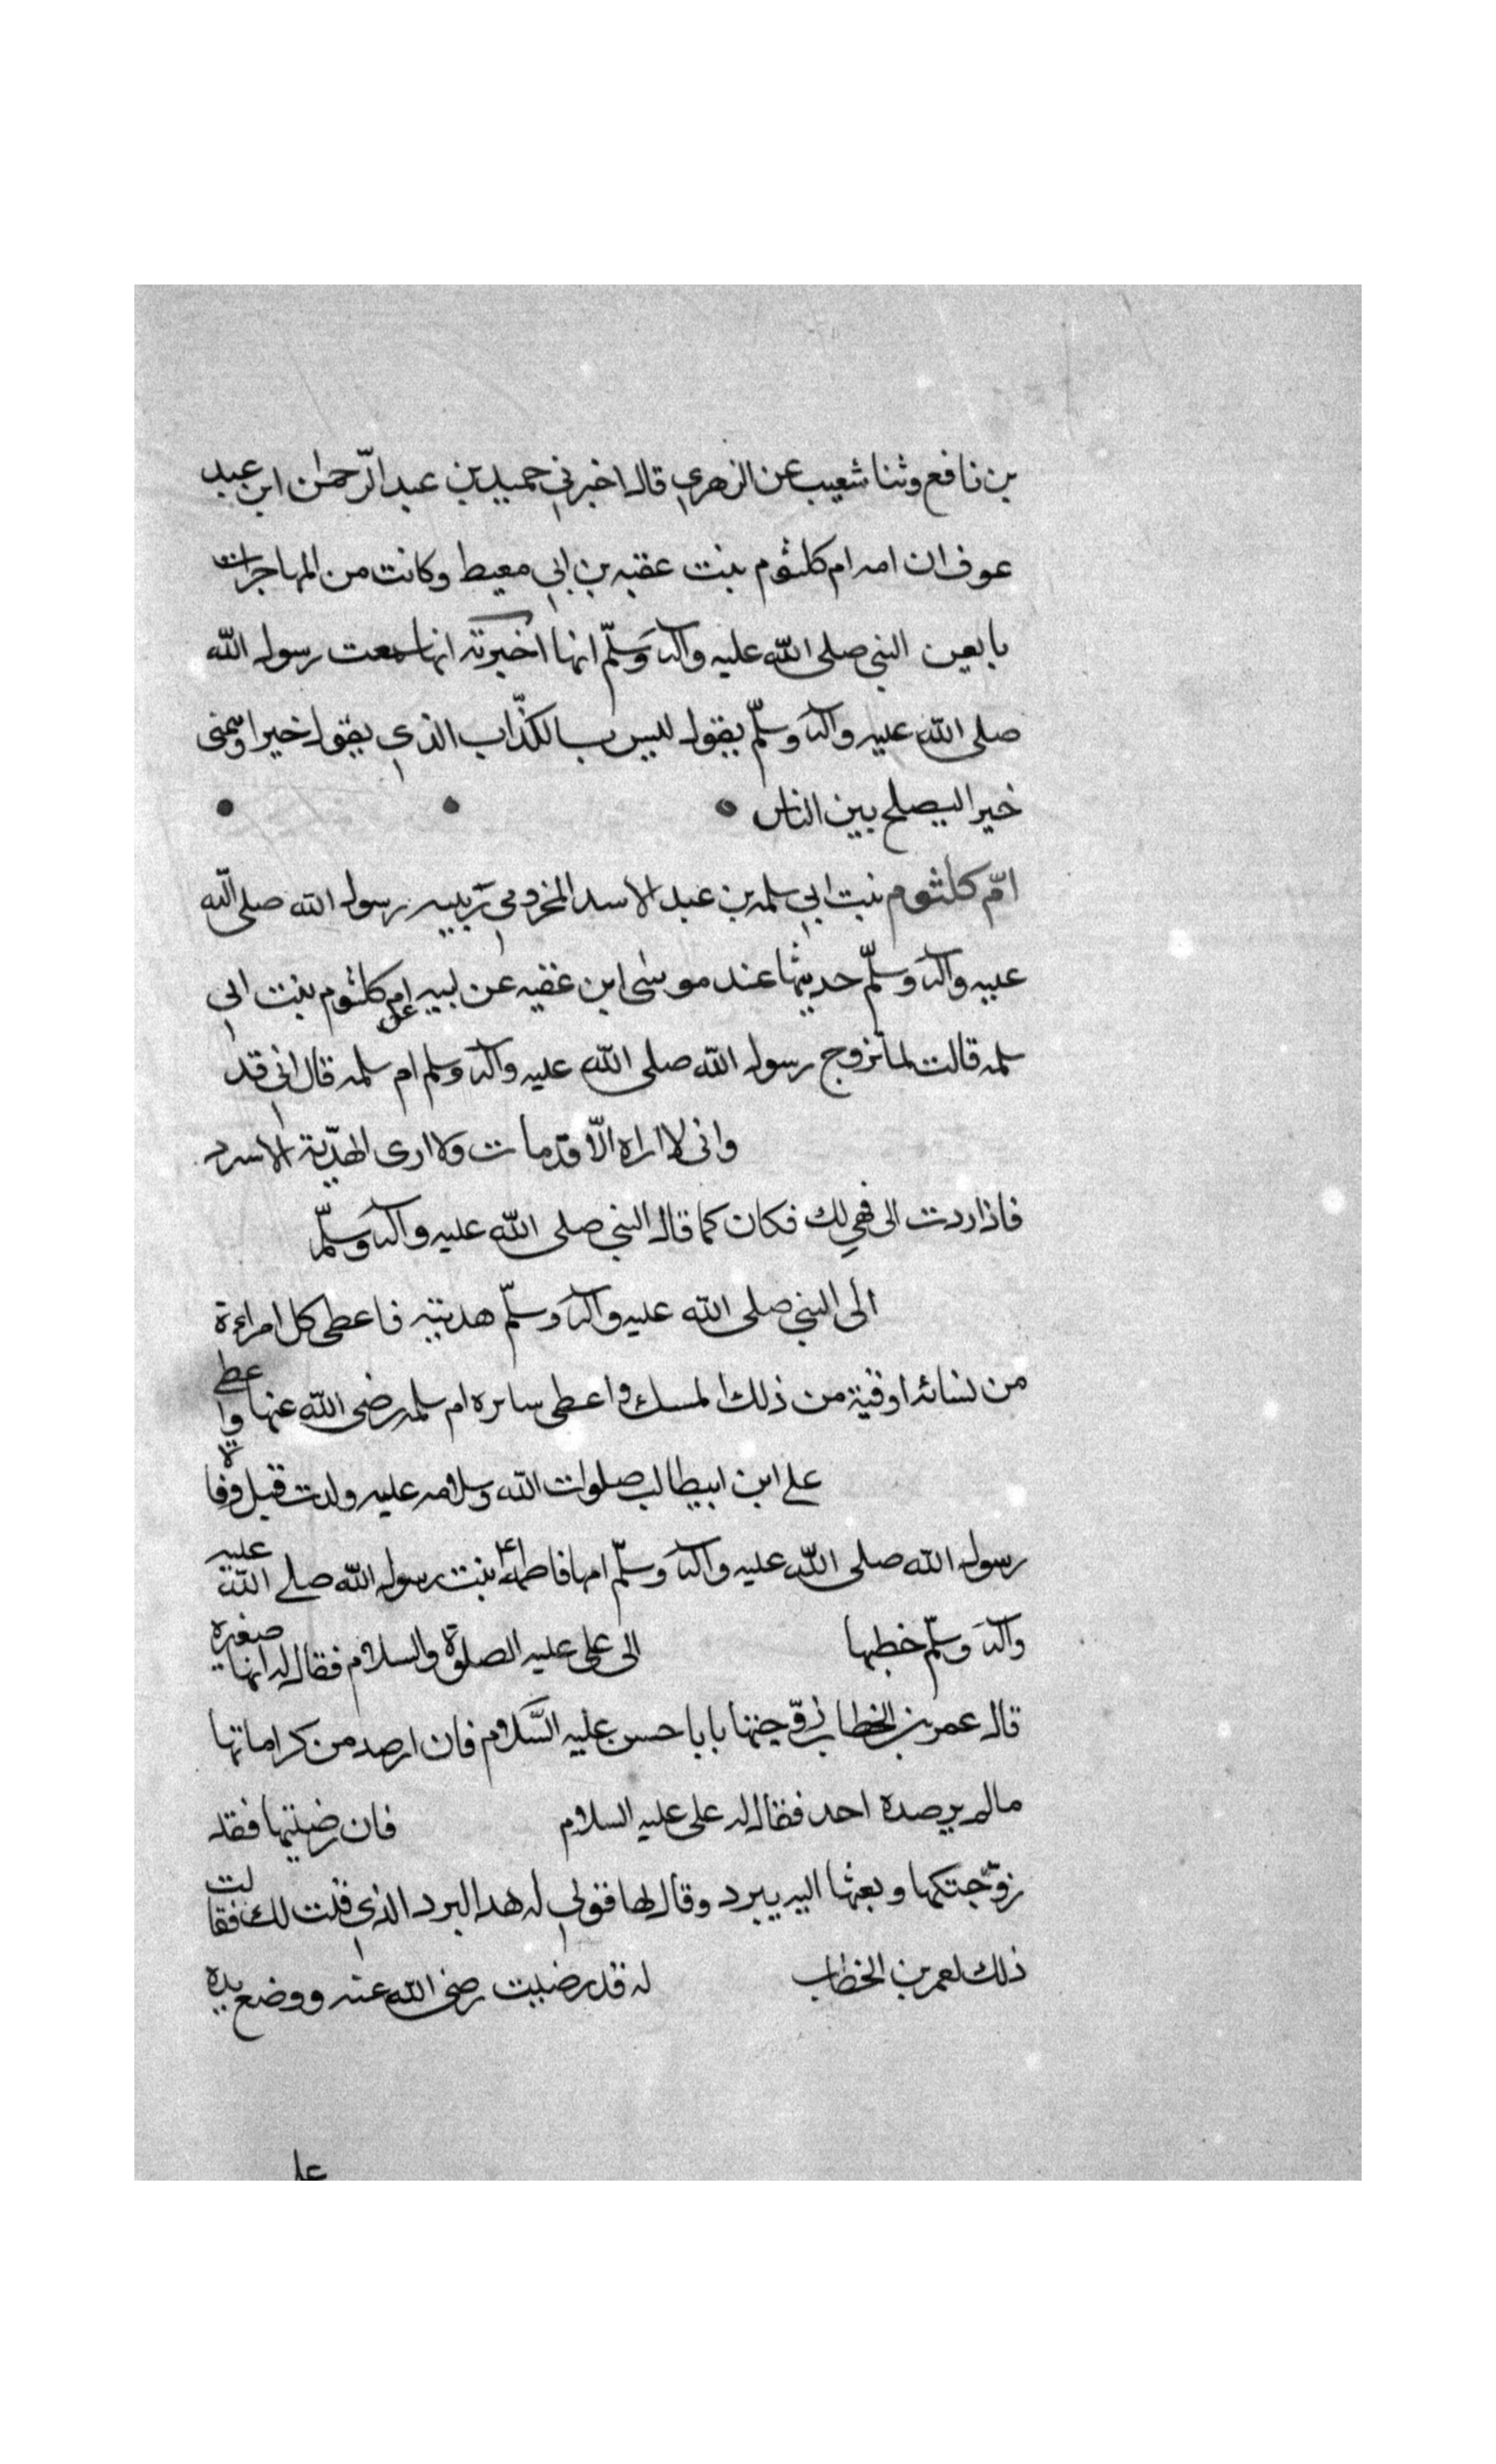 بن نافع وثنا شعيب عن الزهري قال اخبرني حميد بن عبد الرّحمٰن ابن عبد
عوف ان امه ام كلثوم بنت عقبه بن ابي معيط وكانت من المهاجرات
بايعن النبي صلى الله عليه وآله وَسلّم انها اخبرته انها سمعت رسول الله
صلى الله عليه وآله وسلّم يقول ليس بالكذّاب الذي يقول خيرا وينمى
خيرا ليصلح بين الناس
امّ كلثوم بنت ابي سلمه بن عبد الاسد المخزومي ربيبه رسول الله صلى الله
عليه وآله وسلّم حديثها عند موسى ابن عقبه عن ابيه عن ام كلثوم بنت ابي
سلمه قالت لما تزوج رسول الله صلى الله عليه وآله وسلم ام سلمه قال اني قد
واني لا اراه الّا قد مات ولا ارى الهديّة الا سترد
فاذا ردت الى فهي لك فكان كما قال النبي صلى الله عليه وآله وَسلّم
الى النبي صلى الله عليه وآله وسلّم هديته فاعطى كل امراءة
من نسائه اوقية من ذلك المسك واعطى سائره ام سلمه رضى الله عنها واعطى
على ابن ابيطالب صلوات الله وسلامه عليه ولدت قبل وفاة
رسول الله صلى الله عليه وآله وسلّم امها فاطمة بنت رسول الله صلى الله عليه
وآله وسلّم خطبها الى على عليه الصلوة والسلام فقال له انها صغيره
قال عمر بن الخطاب زوّجنيها يابا حسن عليه السَّلام فان ارصد من كراماتها
مالم يرصده احد فقال له على عليه السلام فان رضيتها فقد
زوّجتكها وبعثها اليه ببرد وقال لها قولي له هدا البرد الذي قلت لك فقالت
ذلك لعمر بن الخطاب له قد رضيت رضى الله عنه ووضع يده